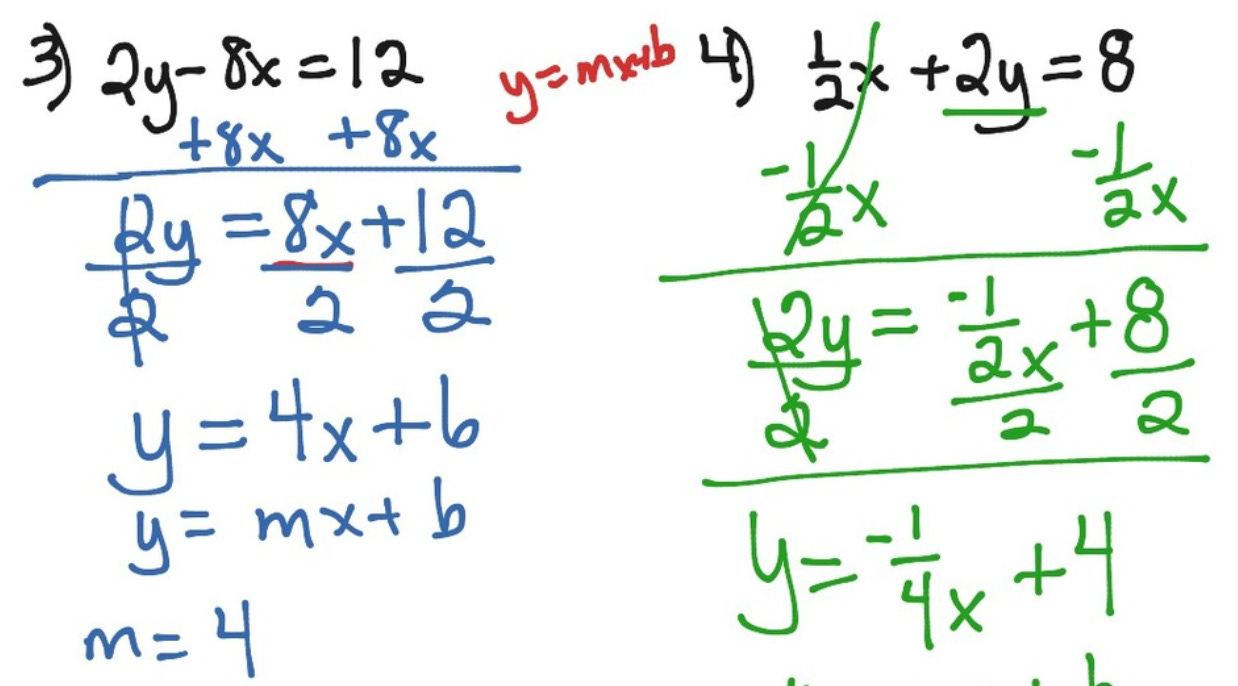 3) 2y - 8x = 12
+8x +8x
2y = 8x + 12
2 2 2
y = 4x + 6
y = mx + b
m = 4
y = mx+b
4) 1/2 x + 2y = 8
-1/2 x -1/2 x
2y = -1/2 x + 8
2 2 2
y = -1/4 x + 4